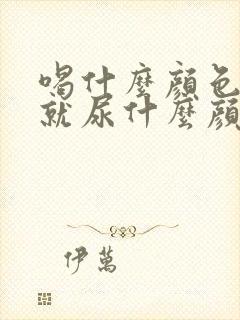 喝什麼顏色
就尿什麼顏
伊萬